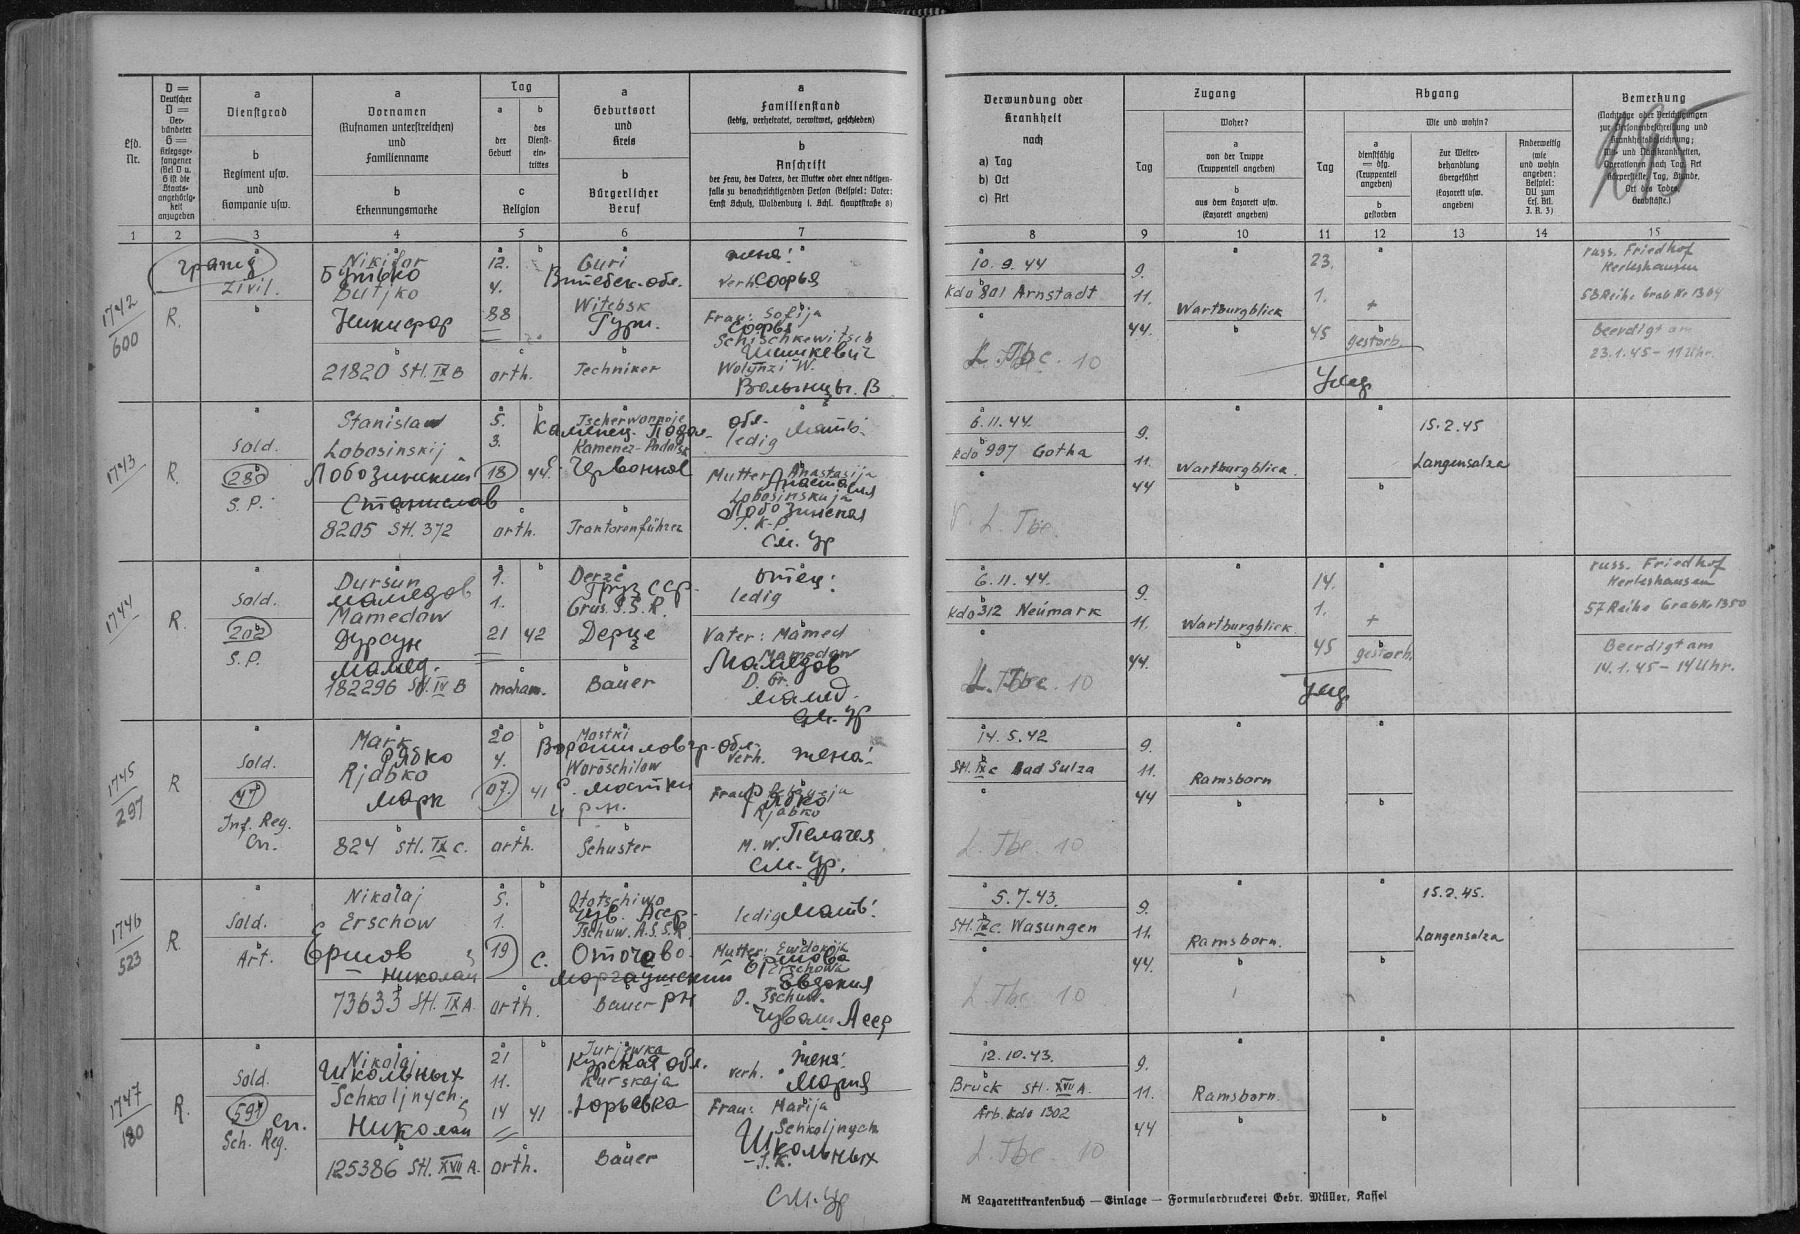 295
Lfd. Nr.
D = Deutscher
V = Verbündeter
G = Kriegsgefangener
(Bei V u. G ist die Staatsangehörigkeit anzugeben
a
Dienstgrad
b
Regiment usw.
und
Kompanie usw.
a
Vornamen
(Rufnamen unterstreichen)
und
Familienname
b
Erkennungsmarke
Tag
a
der Geburt
b
des Diensteintrittes
c
Religion
a
Geburtsort
und
Kreis
b
Bürgerlicher
Beruf
a
Familienstand
(ledig, verheiratet, verwitwet, geschieden)
b
Anschrift
der Frau, des Vaters, der Mutter oder einer nötigenfalls zu benachrichtigenden Person (Beispiel: Vater: Ernst Schulz, Waldenburg i. Schl. Hauptstraße 8)
Verwundung oder
Krankheit
nach
a) Tag
b) Ort
c) Art
Zugang
Tag
Woher?
a
von der Truppe
(Truppenteil angeben)
b
aus dem Lazarett usw.
(Lazarett angeben)
Abgang
Tag
Wie und wohin?
a
dienstfähig
= dfg.
(Truppenteil angeben)
b
gestorben
Zur Weiterbehandlung übergeführt
(Lazarett usw. angeben)
Anderweitig wie und wohin angeben:
Beispiel: DU zum Ers. Btl. I. R. 3)
Bemerkung
1 2 3 4 5 6 7 8 9 10 11 12 13 14 15
1742
600
R.
гражд
Zivil.
Nikifor
Бутько
Butjko
Никифор
21820 Stl. IX B
12.
4.
88
orth.
Guri
Витебск. обл.
Witebsk
Гури.
Techniker
жена:
verh. Софья
Frau: Sofija
Софья
Schischkewitsch
Шишкевич
Wolynzi W.
Волынцы. В
10. 9. 44
Kdo 801 Arnstadt
L. Tbc. 10
9.
11.
44.
Wartburgblick
23.
1.
45
+
gestorb.
Умер
russ. Friedhof
Herleshausen
58 Reihe Grab Nr 1364
Beerdigt am
23.1.45 – 11 Uhr.
1743
R.
Sold.
280
S. P.
Stanislaw
Lobosinskij
Лобозинский
Станислав
8205 Stl. 372
5.
3.
18
44
orth.
Tscherwonnoje
Каменец. Подол-
Kamenez-Podolsk
Червонное
Traktorenführer
обл.
ledig Мать-
Mutter: Anastasija
Анастасия
Lobosinskaja
Лобозинская
J. K-P.
См. Ур
6. 11. 44.
Kdo 997 Gotha
L. Tbc.
9.
11.
44
Wartburgblick.
15. 2. 45
Langensalza
1744
R.
Sold.
202
S. P.
Dursun
Мамедов
Mamedow
Дурсун
Мамед.
182296 Stl. IV B
1.
1.
21
42
moham.
Derze
Груз ССР.
Grus. S.S.R.
Дерце
Bauer
отец:
ledig
Vater: Mamed
Mamedow
Мамедов
D. Gr.
Мамед.
См. Ур
6. 11. 44.
Kdo 312 Neumark
L. Tbc. 10
9.
11.
44.
Wartburgblick.
14.
1.
45
+
gestorb.
Умер
russ. Friedhof
Herleshausen
57 Reihe Grab Nr 1350
Beerdigt am
14. 1. 45 – 14 Uhr.
1745
297
R
Sold.
47
Inf. Reg.
Сп.
Mark
Рябко
Rjabko
Марк
824 Stl. IX C.
20
4.
07.
41
orth.
Mostki
Ворошиловгр. обл.
Woroschilow
с. Мостки
Schuster
verh. жена:
Frau:
Рябко
Rjabko
Пелагея
M. W.
См. Ур.
14. 5. 42
Stl. IX C Bad Sulza
L. Tbc. 10
9.
11.
44
Ramsborn
1746
523
R.
Sold.
Art.
Nikolaj
Erschow
Ершов
Николай
73633 Stl. IX A.
5.
1.
19
с.
orth.
Ototschiwo
Чув. Асср-
Tschuw. A.S.S.R.
Оточево.
Моргаушский
Bauer рн
ledig Мать:
Mutter: Ewdokija
Ершова
Erschowa
Евдокия
D. Tschuw.
Чуваш Асср
5. 7. 43.
Stl. IX C. Wasungen
L. Tbc 10
9.
11.
44.
Ramsborn.
15. 2. 45.
Langensalza
1747
180
R.
Sold.
597
Сп.
Sch. Reg.
Nikolaj
Школьных
Schkoljnych
Николай
125386 Stl. XVII A.
21
11.
14
41
orth.
Jurjewka
Курская обл.
Kurskaja
Юрьевка
Bauer
жена:
verh. Мария
Frau: Marija
Schkoljnych
Школьных
J. K.
См. Ур
12. 10. 43.
Bruck Stl. XVII A.
Arb. Kdo 1302
L. Tbc. 10
9.
11.
44
Ramsborn.
M Lazarettkrankenbuch — Einlage — Formulardruckerei Gebr. Müller, Kassel